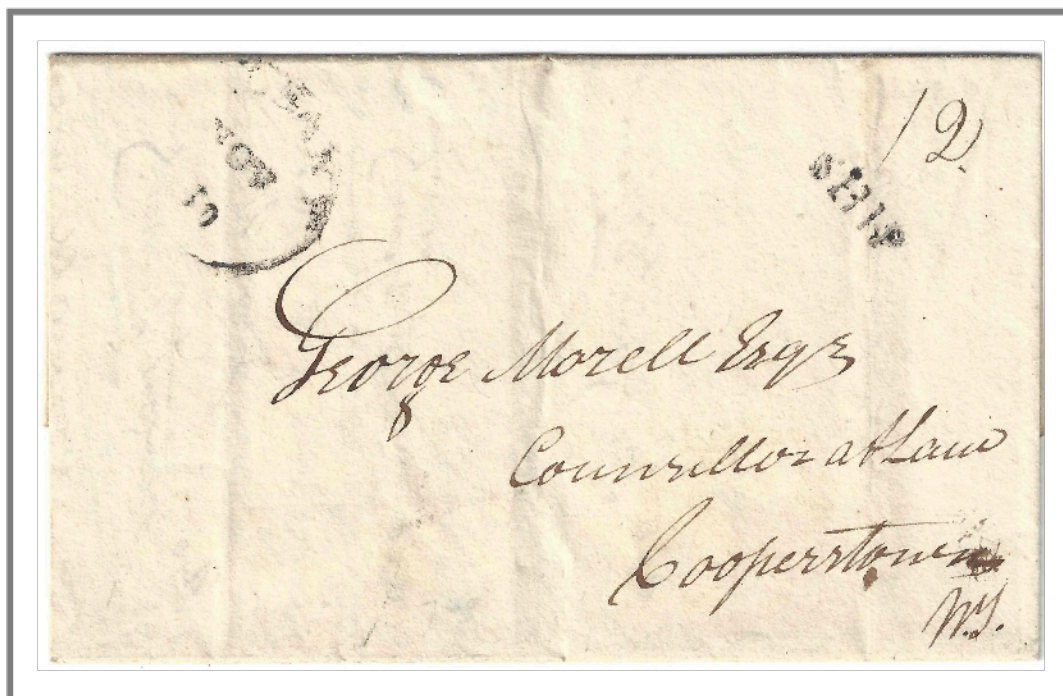 NOV
10
12
SHIP
George Morell Esqr
Councillor at Law
Cooperstown
N.Y.